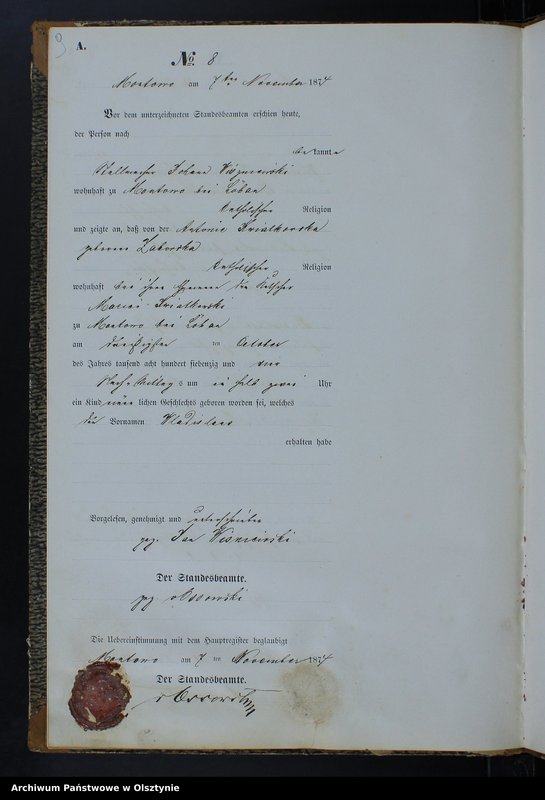 9
A.
№ 8
Montowo am 7ten November 1874
Vor dem unterzeichneten Standesbeamten erschien heute,
der Person nach
be kannt e
Stellmacher Johann Wiszniewski
wohnhaft zu Montowo bei Löbau
katholischer Religion
und zeigte an, daß von der Antonie Kwiatkowska
geborene Zaborska
katholischer Religion
wohnhaft bei ihrem Ehemann
Kwiatkowski
zu Montowo bei Löbau
am dreißigsten ten October
des Jahres tausend acht hundert siebenzig und vier
Nach Mittag s um ein halb zwei Uhr
ein Kind männ lichen Geschlechts geboren worden sei, welches
den Vornamen Wladislaus
erhalten habe
Vorgelesen, genehmigt und unterschrieben
gez. Jan Wiśniewski
Der Standesbeamte.
gez. v Ossowski
Die Uebereinstimmung mit dem Hauptregister beglaubigt
Montowo am 7 ten November 1874
Der Standesbeamte.
v Ossowski
Archiwum Państwowe w Olsztynie